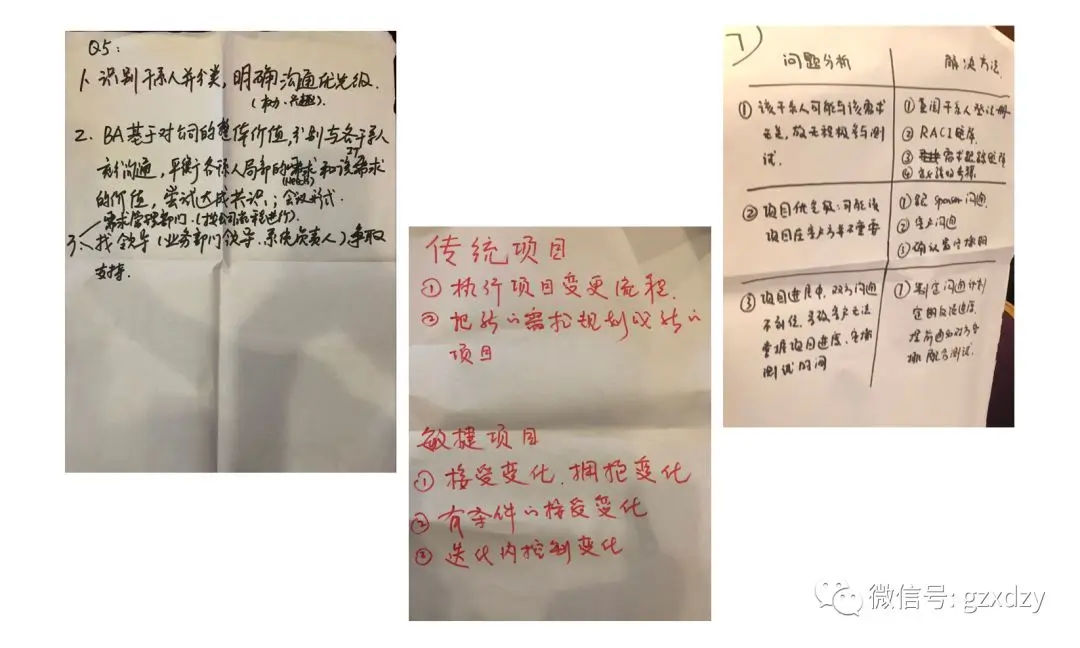 Q5:
1、识别干系人并分类,明确沟通优先级.
(权力、兴趣).
2、BA基于对公司的整体价值,分别与各干系人
进行沟通,平衡各干系人局部的需求和该IT需求
(needs)
的价值,尝试达成共识;会议形式.
需求管理部门.(按公司流程进行).
3、找领导(业务部门领导、系统负责人)争取
支持.
传统项目
① 执行项目变更流程.
② 把新的需求规划成新的
项目
敏捷项目
① 接受变化、拥抱变化
② 有条件的接受变化
③ 迭代内控制变化
7)
问题分析
解决方法.
① 该干系人可能与该需求
无关,故无积极参与测
试.
① 干系人登记册
② RACI矩阵
③ 需求跟踪矩阵
④
② 项目优先级:可能该
项目在客户方并不重要
① 跟 sponsor 沟通.
② 客户沟通
③ 确认
③ 项目进展中,双方沟通
不到位,导致客户无法
掌握项目进度、安排
测试时间
① 制定沟通计划
定期反馈进度,
提前通知对方安
排配合测试.
微信号: gzxdzy